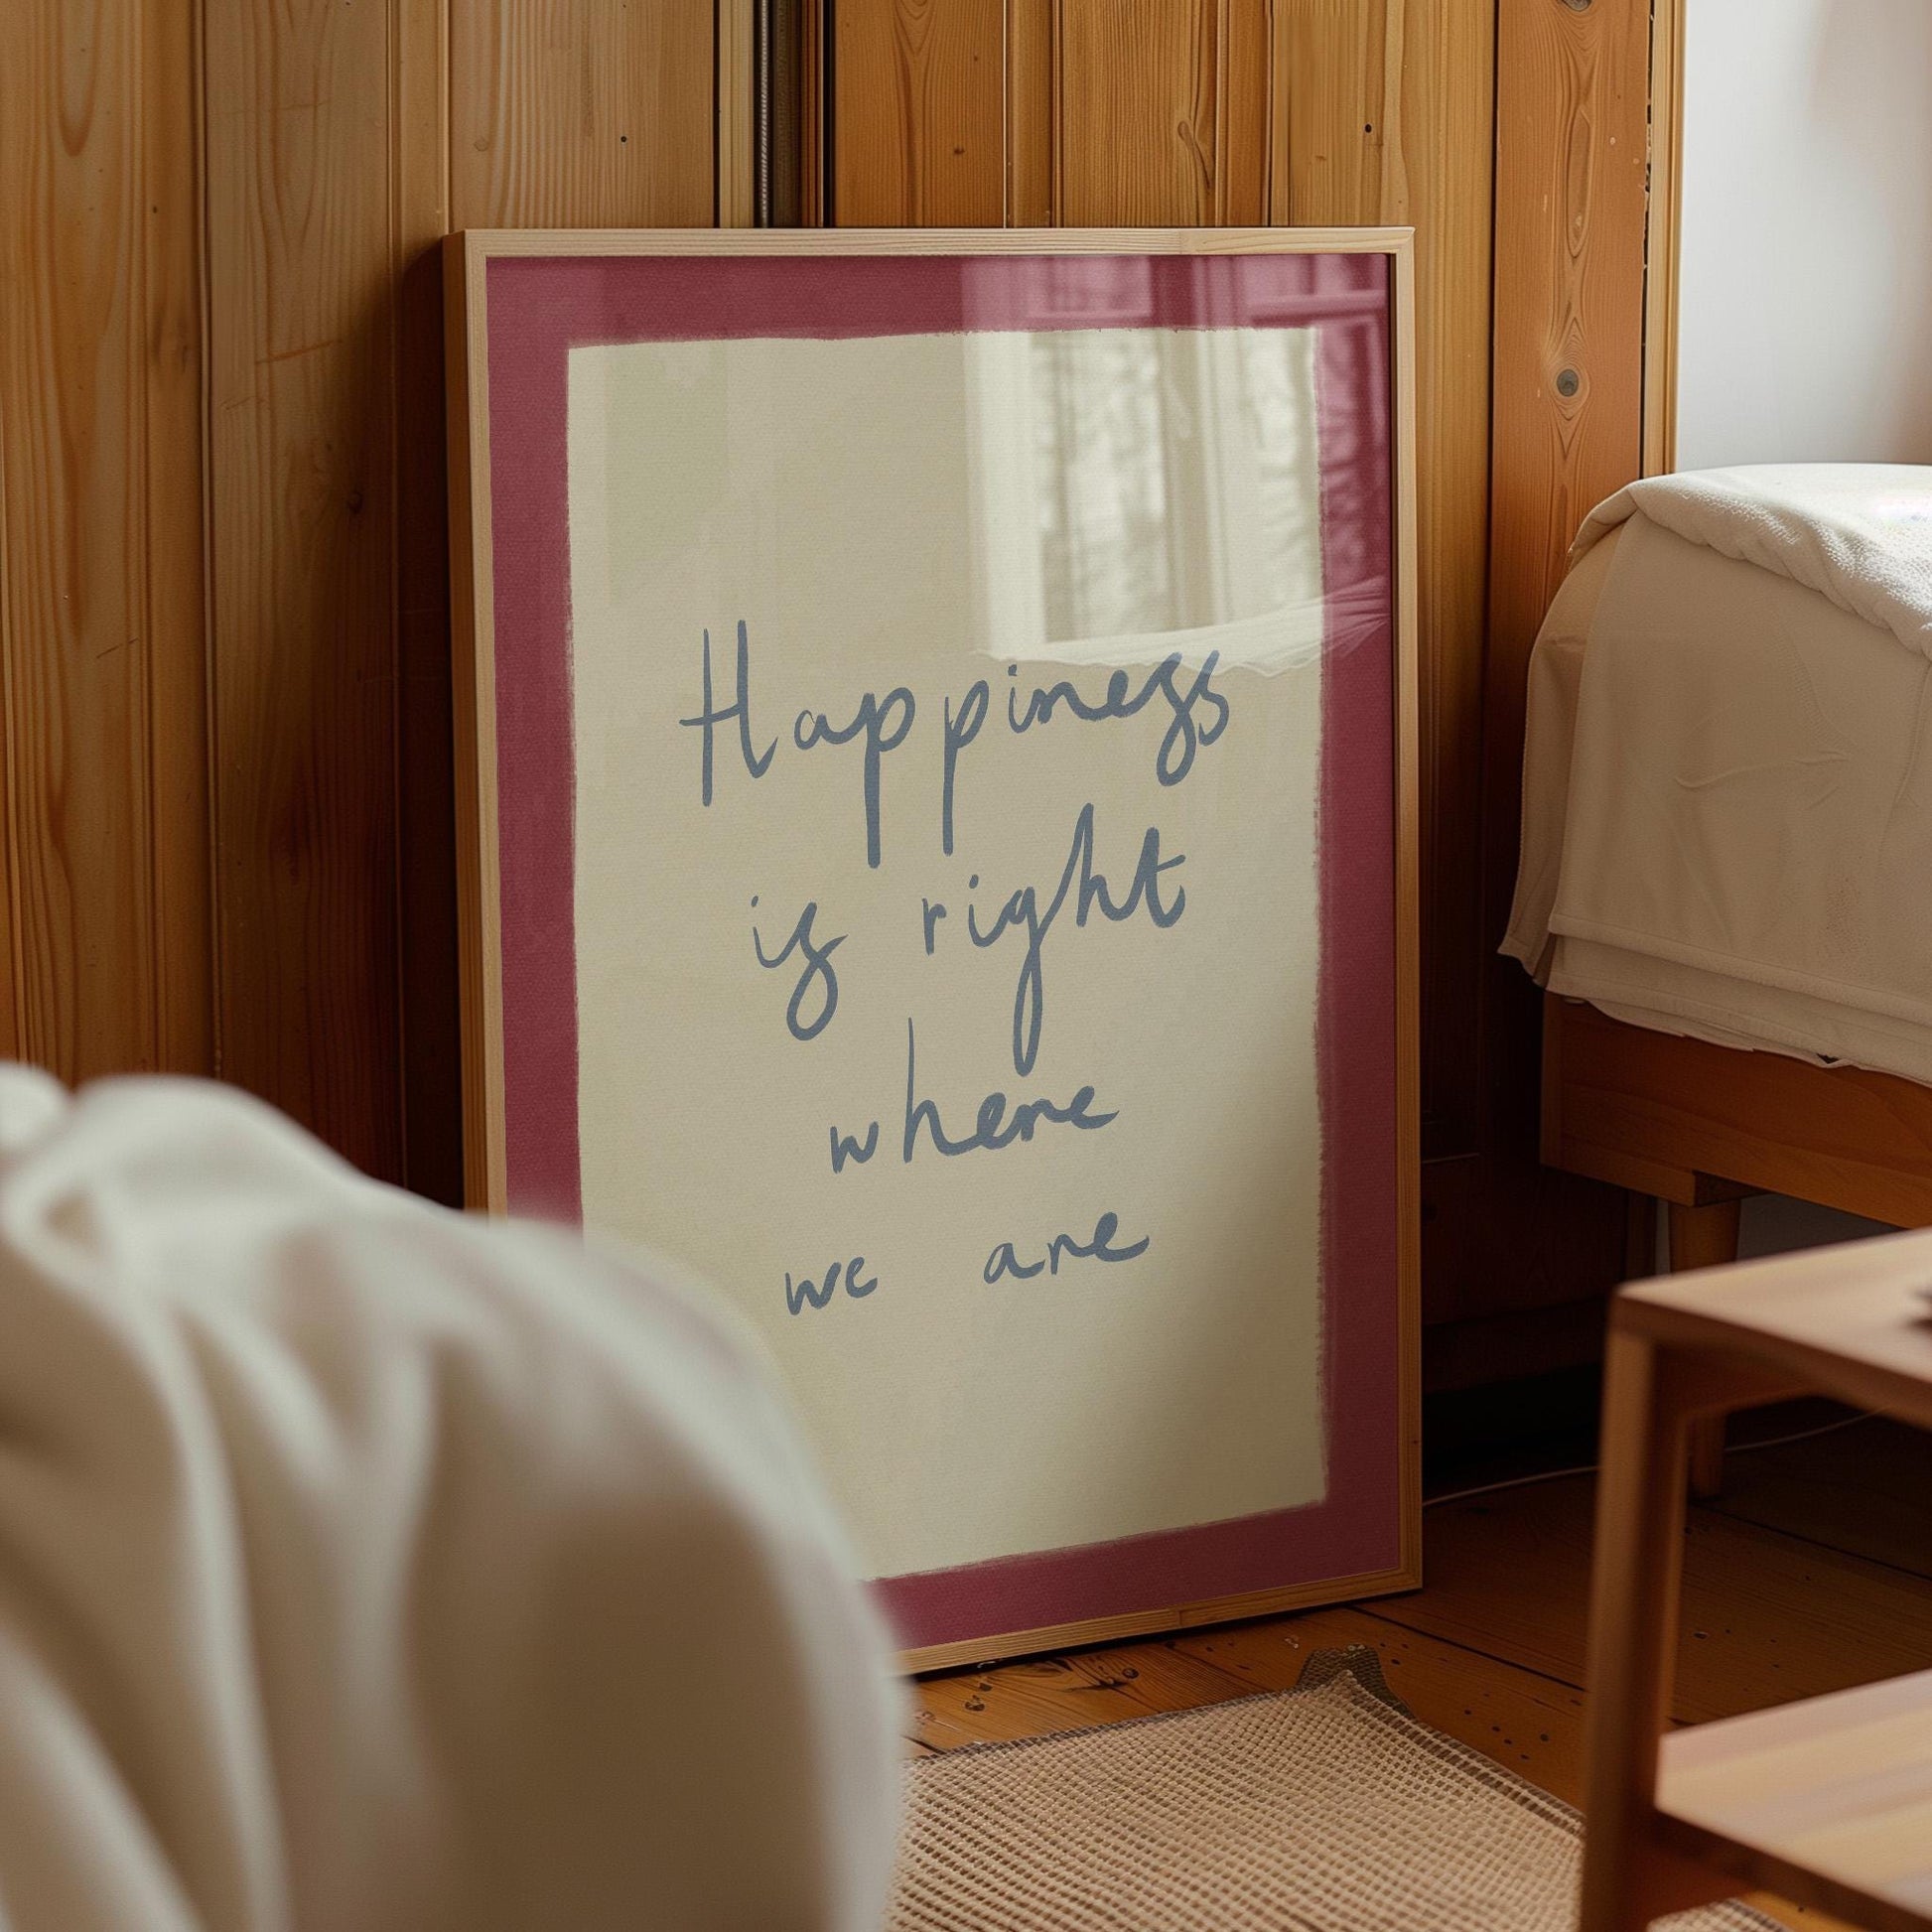 Happiness
is right
where
we are